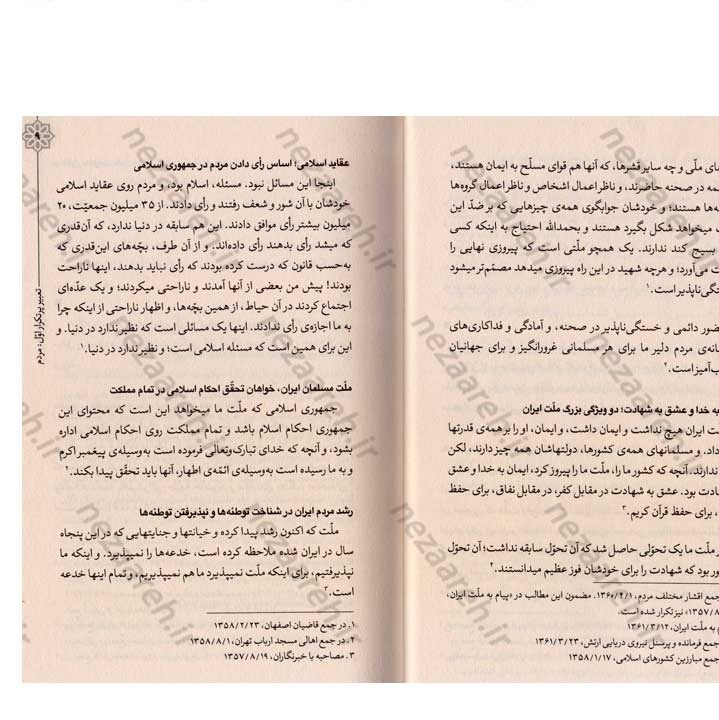 ـای ملّی و چه سایر قشرها، که آنها هم قوای مسلّح به ایمان هستند،
ـمه در صحنه حاضرند، و ناظر اعمال اشخاص و ناظر اعمال گروه‌ها
ـه‌ها هستند؛ و خودشان جوابگوی همه‌ی چیزهایی که بر ضدّ این
میخواهد شکل بگیرد هستند و بحمدالله احتیاج به اینکه کسی
بسیج کند ندارند. یک همچو ملّتی است که پیروزی نهایی را
می‌آورد؛ و هرچه شهید در این راه پیروزی میدهد مصمّم‌تر میشود
ـگی‌ناپذیر است.۱
ـضور دائمی و خستگی‌ناپذیر در صحنه، و آمادگی و فداکاری‌های
ـانه‌ی مردم دلیر ما برای هر مسلمانی غرورانگیز و برای جهانیان
ـب‌آمیز است.۲
به خدا و عشق به شهادت؛ دو ویژگی بزرگ ملّت ایران
ـت ایران هیچ نداشت و ایمان داشت، و ایمان، او را بر همه‌ی قدرتها
ـداد. و مسلمانهای همه‌ی کشورها، دولتهاشان همه چیز دارند، لکن
ندارند. آنچه که کشور ما را، ملّت ما را پیروز کرد، ایمان به خدا و عشق
ـادت بود. عشق به شهادت در مقابل کفر، در مقابل نفاق، برای حفظ
، برای حفظ قرآن کریم.۳
ملّت ما یک تحوّلی حاصل شد که آن تحوّل سابقه نداشت؛ آن تحوّل
ـور بود که شهادت را برای خودشان فوز عظیم میدانستند.۴
ـجمع اقشار مختلف مردم، ۱۳۶۰/۲/۱. مضمون این مطالب در «پیام به ملّت ایران،
۱۳۵۷/۸» نیز تکرار شده است.
ـم به ملّت ایران، ۱۳۶۱/۳/۱۲
جمع فرمانده و پرسنل نیروی دریایی ارتش، ۱۳۶۱/۳/۲۳
جمع مبارزین کشورهای اسلامی، ۱۳۵۸/۱/۱۷
۹
تعبیر پرتکرار اوّل: مردم
عقاید اسلامی؛ اساس رأی دادن مردم در جمهوری اسلامی
اینجا این مسائل نبود. مسئله، اسلام بود، و مردم روی عقاید اسلامی
خودشان با آن شور و شعف رفتند و رأی دادند. از ۳۵ میلیون جمعیّت، ۲۰
میلیون بیشتر رأی موافق دادند. این هم سابقه در دنیا ندارد، که آن‌قدری
که میشد رأی بدهند رأی داده‌اند. و از آن طرف، بچّه‌های این‌قدری که
به‌حسب قانون که درست کرده بودند که رأی نباید بدهند، اینها ناراحت
بودند! پیش من بعضی از آنها آمدند و ناراحتی میکردند؛ و یک عدّه‌ای
اجتماع کردند در آن حیاط، از همین بچّه‌ها، و اظهار ناراحتی از اینکه چرا
به ما اجازه‌ی رأی ندادند. اینها یک مسائلی است که نظیر ندارد در دنیا. و
این برای همین است که مسئله اسلامی است؛ و نظیر ندارد در دنیا.۱
ملّت مسلمان ایران، خواهان تحقّق احکام اسلامی در تمام مملکت
جمهوری اسلامی که ملّت ما میخواهد این است که محتوای این
جمهوری احکام اسلام باشد و تمام مملکت روی احکام اسلامی اداره
بشود، و آنچه که خدای تبارک‌وتعالی فرموده است به‌وسیله‌ی پیغمبر اکرم
و به ما رسیده است به‌وسیله‌ی ائمّه‌ی اطهار، آنها باید تحقّق پیدا بکند.۲
رشد مردم ایران در شناخت توطئه‌ها و نپذیرفتن توطئه‌ها
ملّت که اکنون رشد پیدا کرده و خیانتها و جنایتهایی که در این پنجاه
سال در ایران شده ملاحظه کرده است، خدعه‌ها را نمیپذیرد. و اینکه ما
نپذیرفتیم، برای اینکه ملّت نمیپذیرد ما هم نمیپذیریم، و تمام اینها خدعه
است.۳
۱. در جمع قاضیان اصفهان، ۱۳۵۸/۲/۲۳
۲. در جمع اهالی مسجد ارباب تهران، ۱۳۵۸/۸/۱
۳. مصاحبه با خبرنگاران، ۱۳۵۷/۸/۱۹
nezaareh.ir